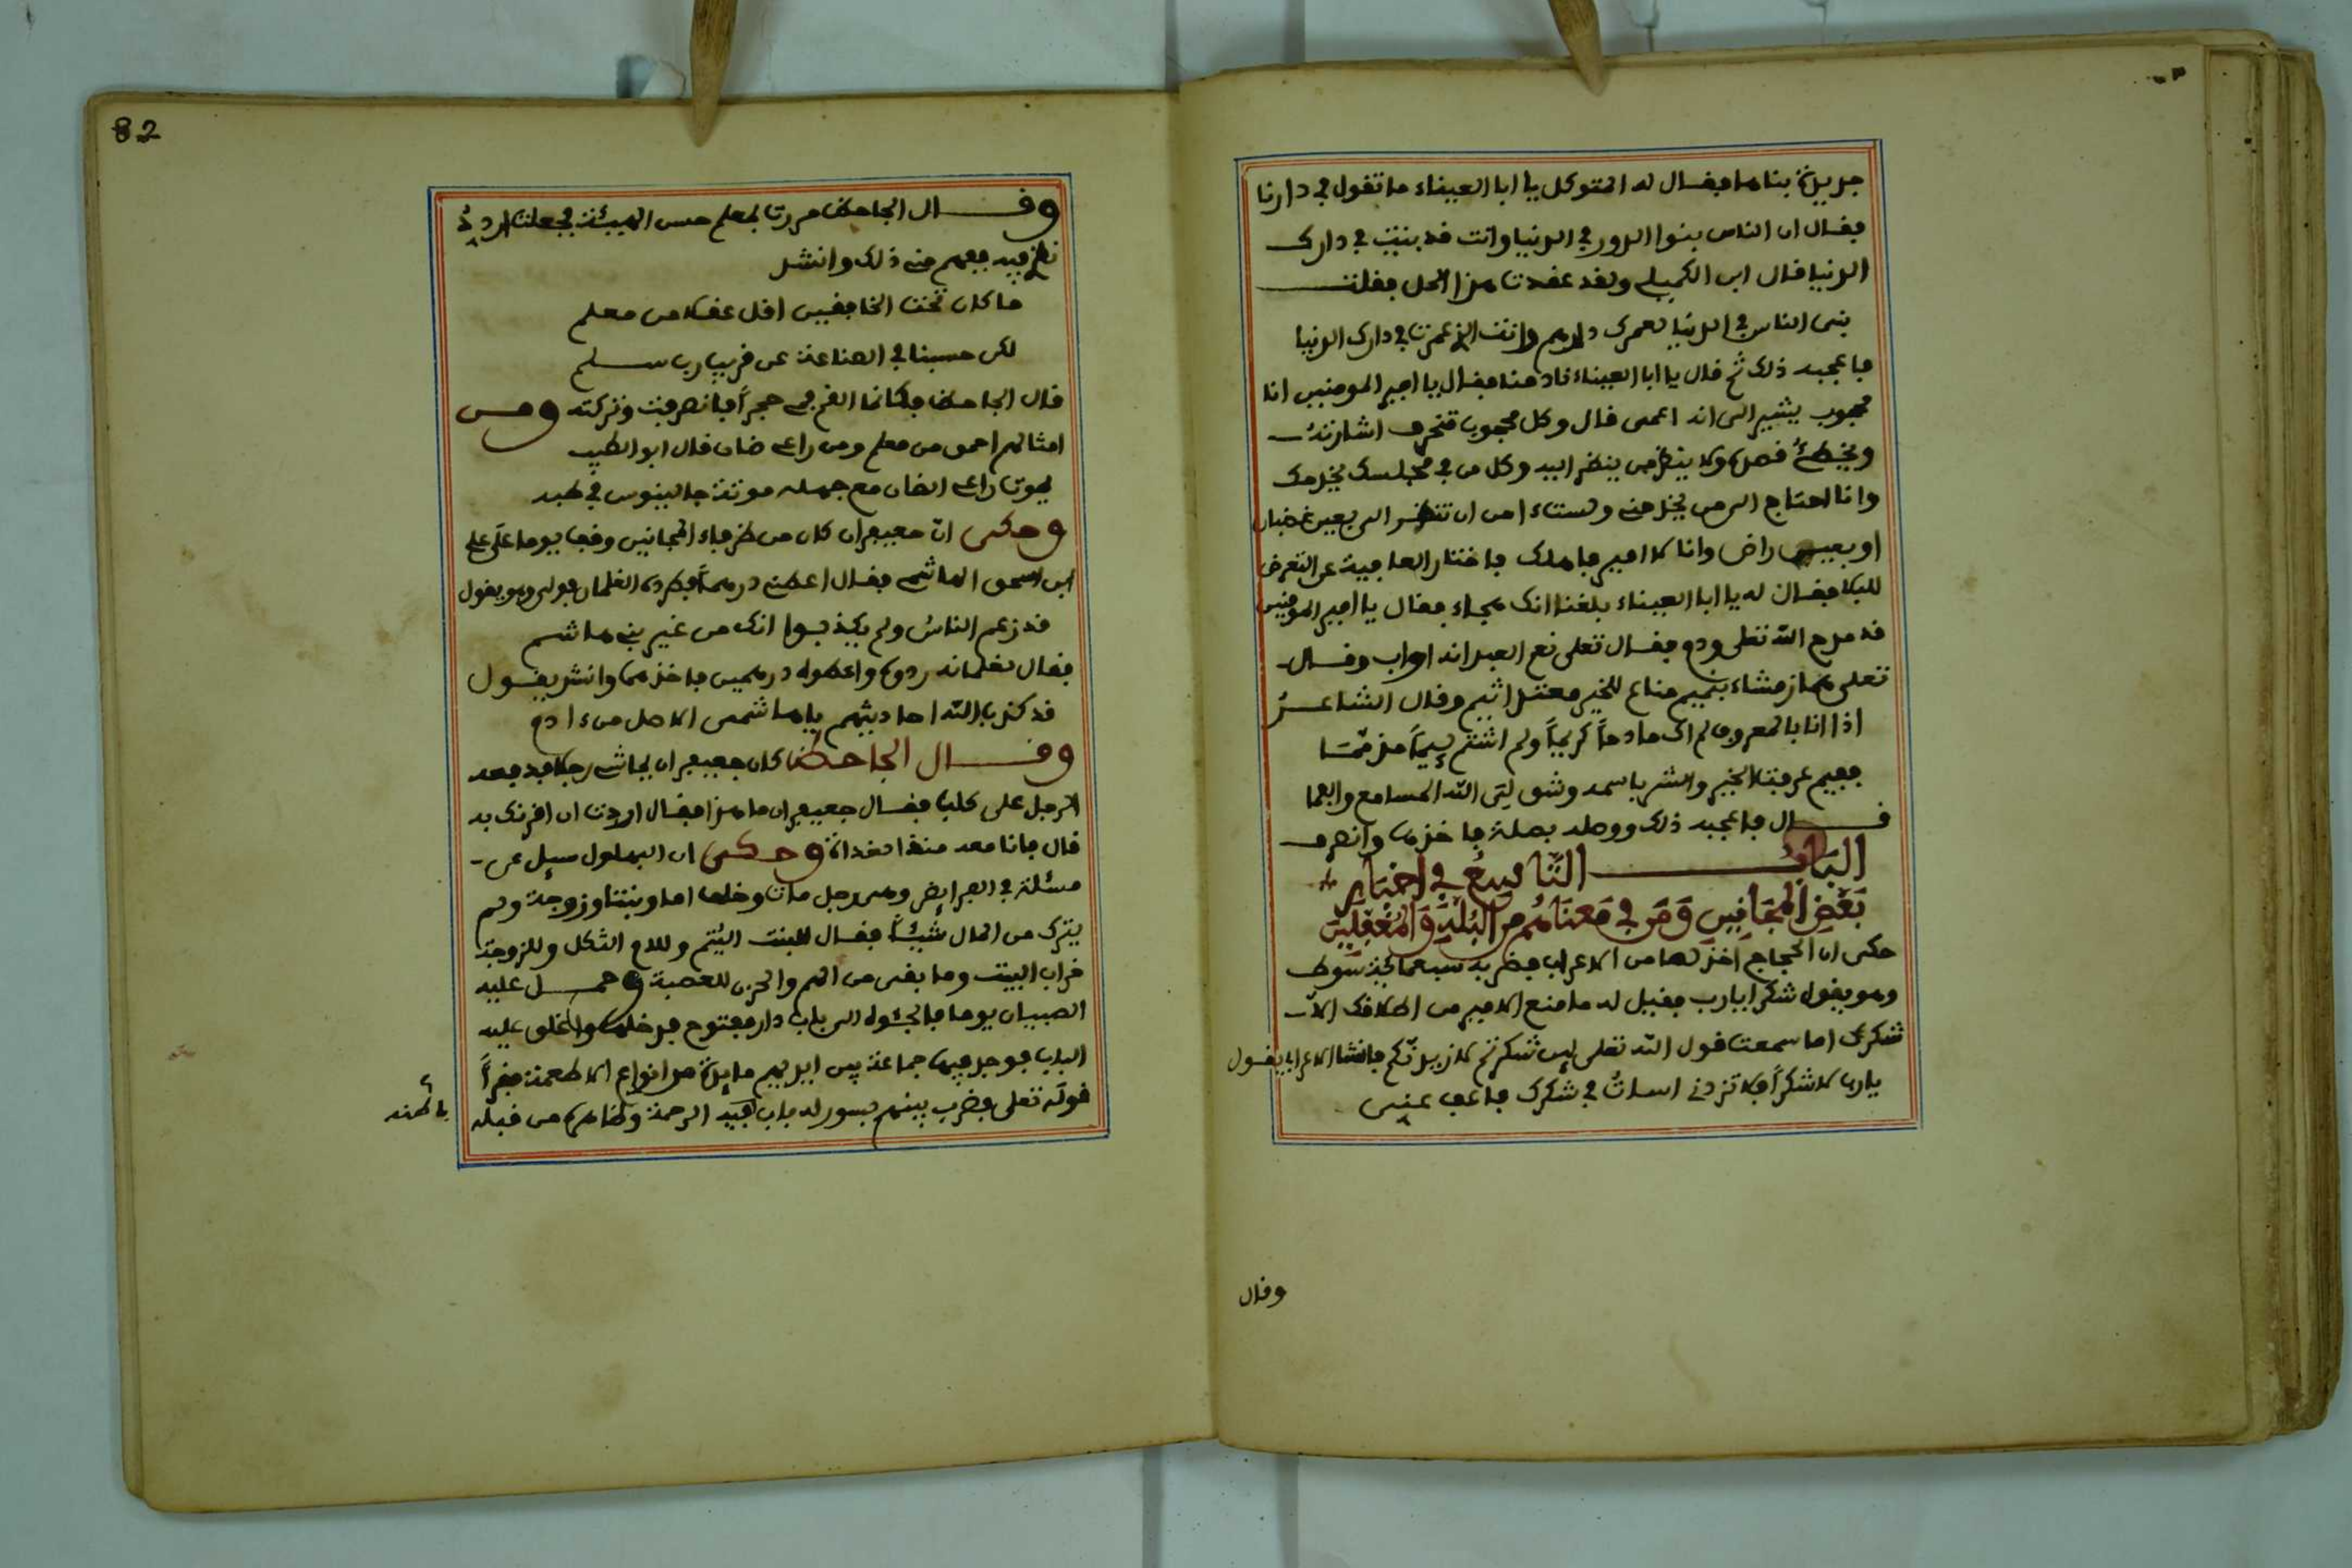 جديدة بناها فقال له المتوكل يا ابا العيناء ما تقول في دارنا
فقال ان الناس بنوا الدور في الدنيا وانت قد بنيت في دارك
الدنيا قال ابن الكميلي ولقد عقدت هذا الحل فقلت
بنى الناس في الدنيا لعمري دارهم وانت الذي عمرت في دارك الدنيا
فاعجبه ذلك ثم قال يا ابا العيناء نادمنا فقال يا امير المومنين انا
محجوب يشير الى انه اعمى قال وكل محجوب تنحرف اشارته
ويخطئ قصده ولا ينظر من ينظر اليه وكل من في مجلسك يخدمك
وانا احتاج الى من يخدمني ولست ءامن ان تنظر الي بعين غضبان
او بعين راض وانا لا اميز هاذك فاختار العافية عن التعرض
للبلا فقال له يا ابا العيناء بلغنا انك هجاء فقال يا امير المومنين
قد مدح الله تعلى وذم فقال تعلى نعم العبد انه اواب وقال
تعلى هماز مشاء بنميم مناع للخير معتد اثيم وقال الشاعر
اذا انا بالمعروف لم اك مادحاً كريماً ولم اشتم لئيماً مذمما
ففيم عرفت الخير والشر باسمه وشق لي الله المسامع والفما
قال فاعجبه ذلك ووصله بصلة فاخذها وانصرف
الباب التاسع في اخبار
بعض المجانين ومن في معناهم من البله والمغفلين
حكى ان الحجاج اخذ لصا من الاعراب فضربه سبعمائة سوط
وهو يقول شكرا يارب فقيل له ما منع الامير من اطلاقك الا
شكرك اما سمعت قول الله تعلى لئن شكرتم لازيدنكم فانشا الاعرابي يقول
يارب لا شكراً فلا تزدني اسات في شكرك فاعف عني
وقال
82
وقال الجاحظ مررت بمعلم حسن الهيئة فجعلت اردد
نظر فيه ففهم مني ذلك وانشد
ما كان تحت الخافقين اقل عقلا من معلم
لكن حسبنا في الصناعة عن قريب رب سلم
قال الجاحظ فكانما القمني حجراً فانصرفت وتركته ومن
امثالهم احمق من معلم ومن راعي ضان قال ابو الطيب
يموت راعي الضان مع جهله موتة جالينوس في طبه
وحكى ان جعيفران كان من ظرفاء المجانين وقف يوما على علي
ابن اسحق الهاشمي فقال اعطني درهماً فطرده الغلمان فولى وهو يقول
قد زعم الناس ولم يكذبوا انك من غير بني هاشم
فقال لغلمانه ردوه واعطوه درهمين فاخذهما وانشد يقول
قد كذب الله احاديثهم يا هاشمي الاصل من ءادم
وقال الجاحظ كان جعيفران يماشي رجلا فدفعه
الرجل على كلب فقال جعيفران ما هذا فقال اردت ان اقرنك به
قال فانا معه منذ الغداة وحكى ان البهلول سيل عن
مسئلة في الفرايض وهي رجل مات وخلف اما وبنتا وزوجة ولم
يترك من المال شيئاً فقال للبنت اليتم وللام الثكل وللزوجة
خراب البيت وما بقى من الهم والحزن للعصبة وحمل عليه
الصبيان يوما فالجئوه الى باب دار مفتوح فدخلها واغلق عليه
الباب فوجد فيها جماعة بين ايديهم مايدة من انواع الاطعمة فقرأ
قوله تعلى فضرب بينهم بسور له باب فيه الرحمة وظاهره من قبله
باطنه